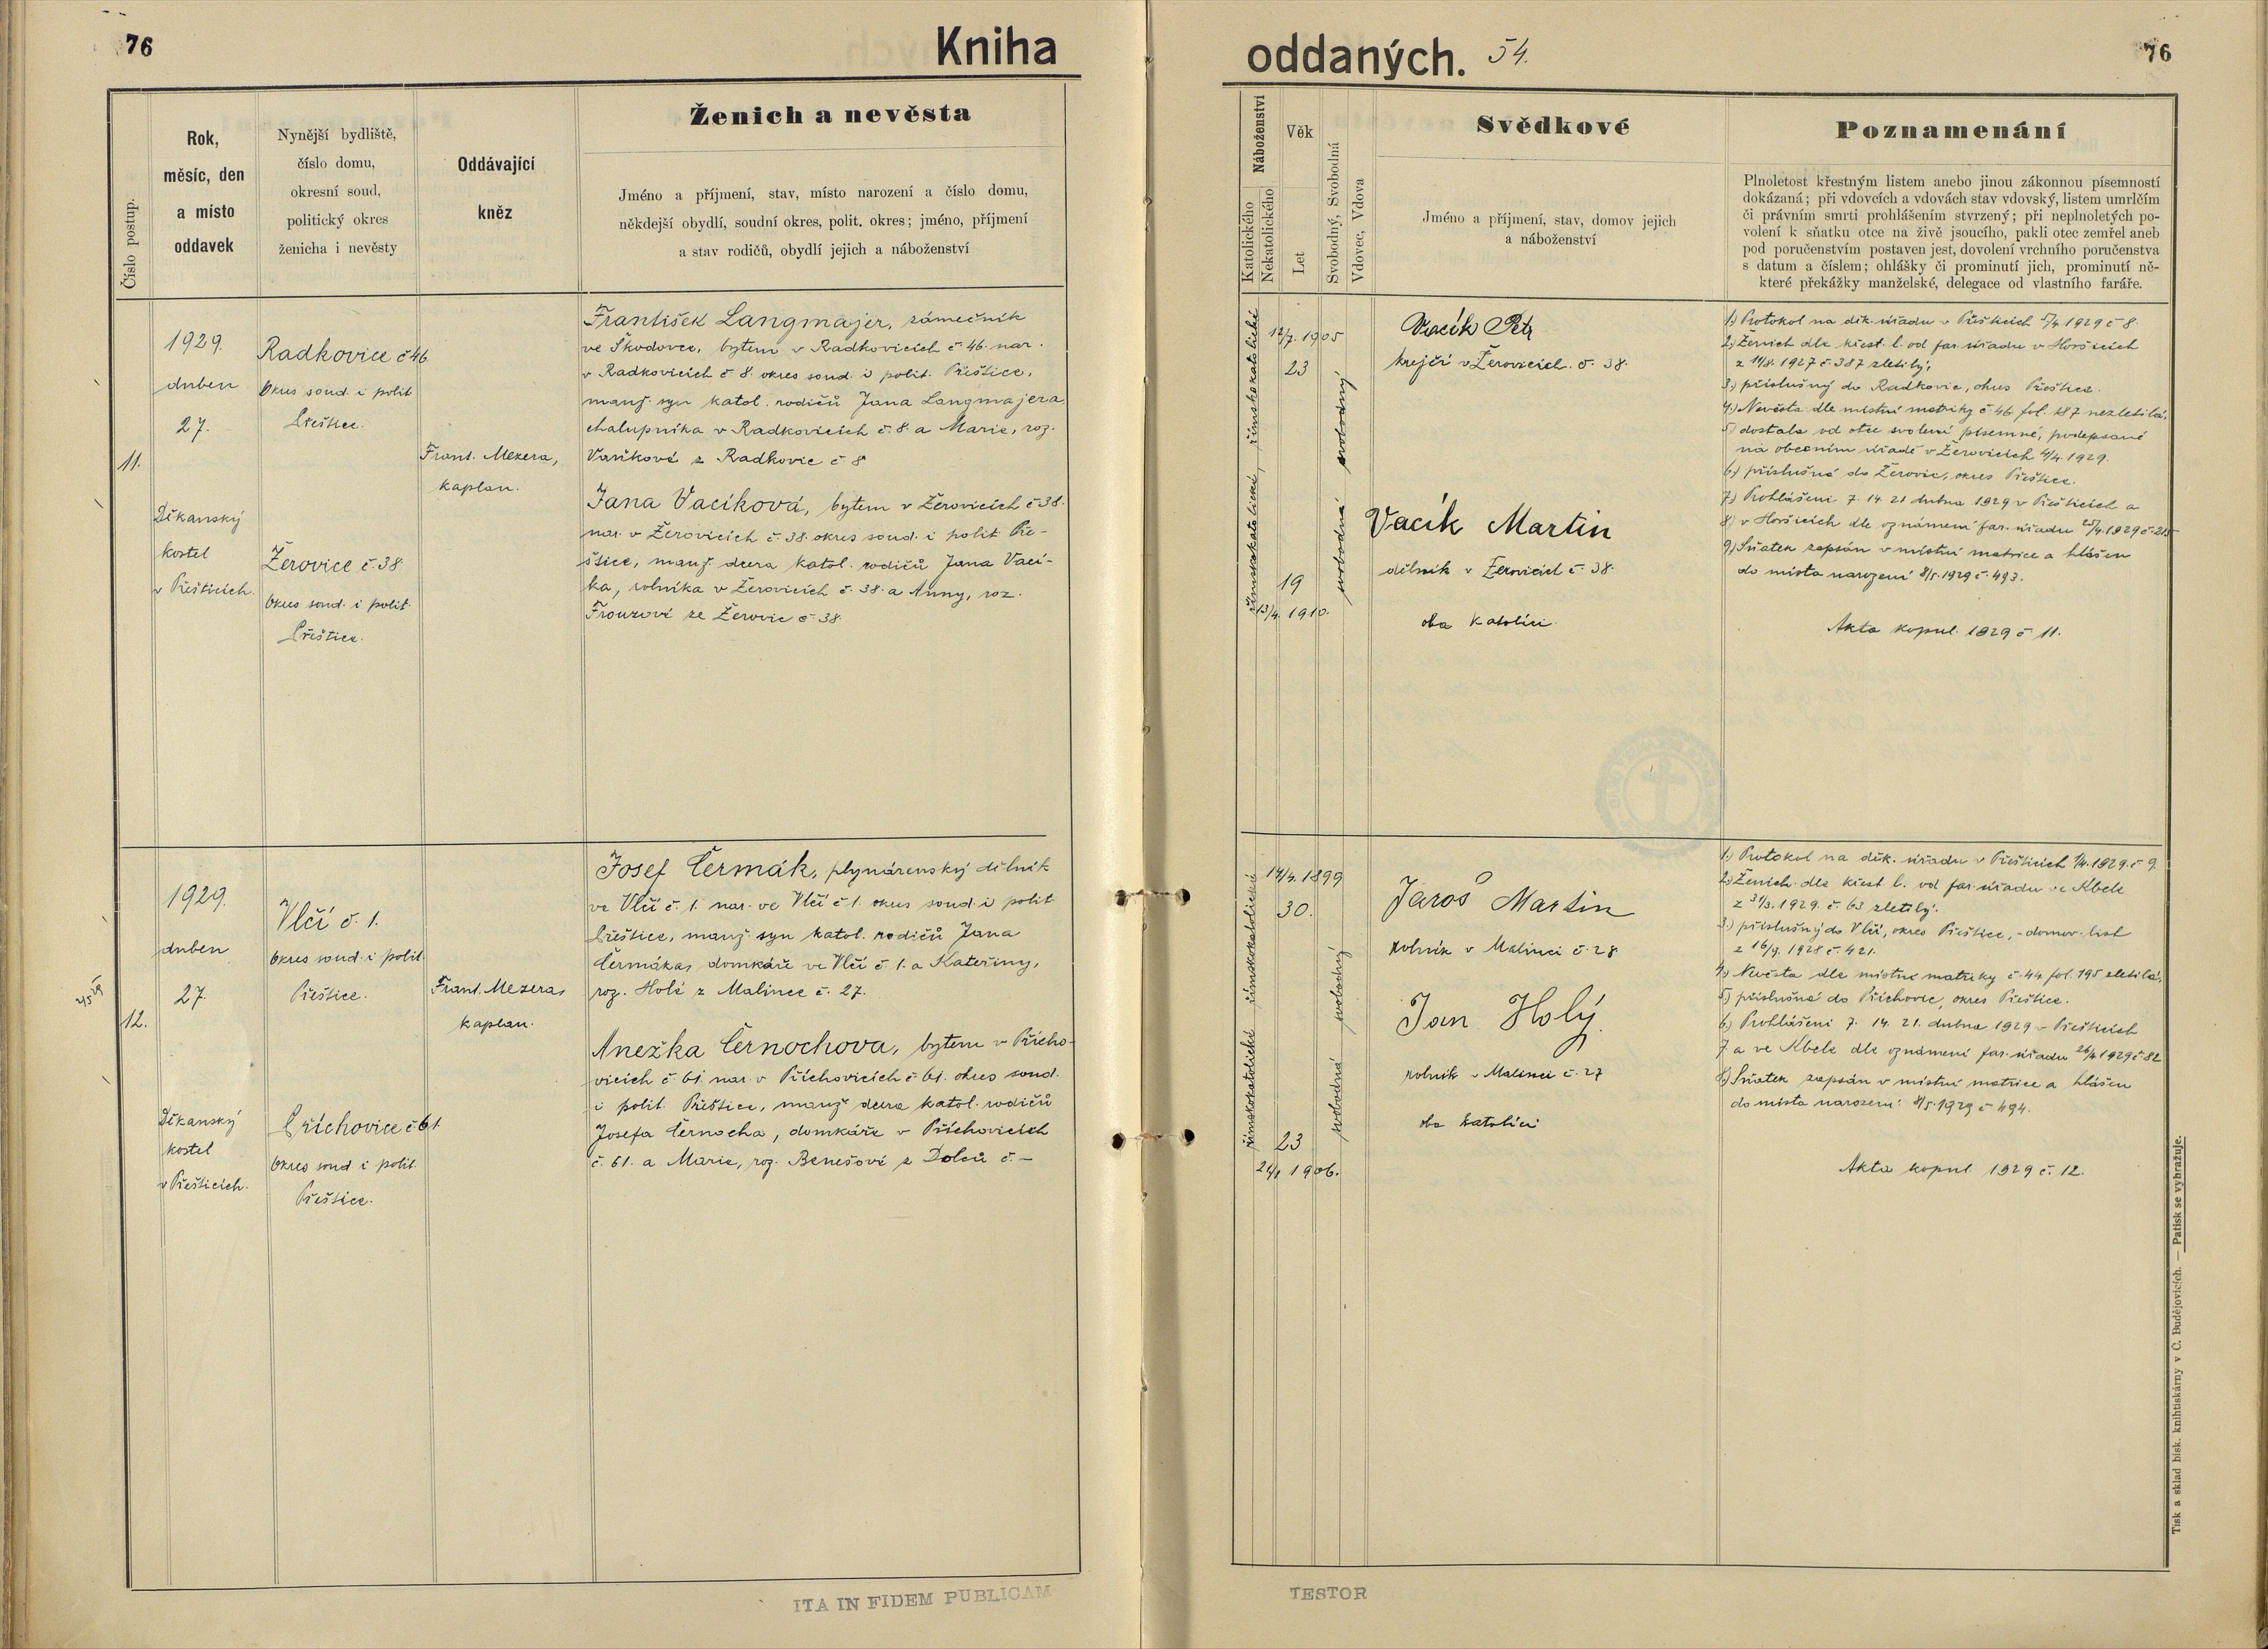 76
Kniha
Číslo postup.
Rok,
měsíc, den
a místo
oddavek
Nynější bydliště,
číslo domu,
okresní soud,
politický okres
ženicha i nevěsty
Oddávající
kněz
Ženich a nevěsta
Jméno a příjmení, stav, místo narození a číslo domu,
někdejší obydlí, soudní okres, polit. okres; jméno, příjmení
a stav rodičů, obydlí jejich a náboženství
11.
1929.
duben
27.
Děkanský
kostel
v Přešticích.
Radkovice č 46.
Okres soud. i polit.
Přeštice.
Žerovice č. 38.
Okres soud. i polit.
Přeštice.
Frant. Mezera,
kaplan.
František Langmajer, zámečník
ve Škodovce, bytem v Radkovicích č. 46. nar.
v Radkovicích č 8. okres soud. i polit. Přeštice,
manž. syn katol. rodičů Jana Langmajera
chalupníka v Radkovicích č. 8. a Marie, roz.
Vaňkové z Radkovic č 8
Jana Vacíková, bytem v Žerovicích č 38.
nar. v Žerovicích č. 38. okres soud. i polit. Pře-
štice, manž. dcera katol. rodičů Jana Vací-
ka, rolníka v Žerovicích č. 38. a Anny, roz.
Frouzové ze Žerovic č 38.
12.
1929.
duben
27.
Děkanský
kostel
v Přešticích.
Vlčí č. 1.
Okres soud. i polit.
Přeštice.
Příchovice č 61
Okres soud i polit.
Přeštice.
Frant. Mezera,
kaplan.
Josef Čermák, plynárenský dělník
ve Vlčí č. 1. nar. ve Vlčí č 1. okres soud. i polit
Přeštice, manž. syn katol. rodičů Jana
Čermáka, domkáře ve Vlčí č. 1. a Kateřiny,
roz. Holé z Malince č. 27.
Anežka Černochova, bytem v Přícho-
vicích č. 61. nar. v Příchovicích č 61. okres soud.
i polit. Přeštice, manž dcera katol. rodičů
Josefa Černocha, domkáře v Příchovicích
č. 61. a Marie, roz. Benešové z Dolců č. –
ITA IN FIDEM PUBLICAM
oddaných.
54.
76
Náboženství
Katolického
Nekatolického
Věk
Let
Svobodný, Svobodná
Vdovec, Vdova
Svědkové
Jméno a příjmení, stav, domov jejich
a náboženství
Poznamenání
Plnoletost křestným listem anebo jinou zákonnou písemností
dokázaná; při vdovcích a vdovách stav vdovský, listem umrlčím
či právním smrti prohlášením stvrzený; při neplnoletých po-
volení k sňatku otce na živě jsoucího, pakli otec zemřel aneb
pod poručenstvím postaven jest, dovolení vrchního poručenstva
s datum a číslem; ohlášky či prominutí jich, prominutí ně-
které překážky manželské, delegace od vlastního faráře.
římskokatolické
římskokatolické
12/7. 1905
23
19
13/4. 1910.
svobodný
svobodná
Vacík Petr
krejčí v Žerovicích. č. 38.
Vacík Martin
dělník v Žerovicích č. 38.
oba katolíci.
1.) Protokol na děk. úřadu v Přešticích 5/4 1929 č 8.
2.) Ženich dle křest. l. od far. úřadu v Horšicích
z 11/8. 1927 č. 387 zletilý;
3.) příslušný do Radkovic, okres Přeštice.
4.) Nevěsta dle místní matriky č 46 fol. 187 nezletilá,
5) dostala od otce svolení písemné, podepsané
na obecním úřadě v Žerovicích 4/4. 1929.
6.) příslušná do Žerovic, okres Přeštice.
7.) Prohlášeni 7. 14. 21 dubna 1929 v Přešticích a
8.) v Horšicích dle oznámení far. úřadu 25/4. 1929 č. 215
9.) Sňatek zapsán v místní matrice a hlášen
do místa narození 8/5. 1929 č. 493.
Akta kopul. 1929 č 11.
římskokatolické
římskokatolické
14/4. 1899
30.
23
21/1 1906.
svobodný
svobodná
Jaroš Martin
rolník v Malinci č. 28
Jan Holý.
rolník v Malinci č. 27
oba katolíci
1.) Protokol na děk. úřadu v Přešticích 1/4. 1929. č 9.
2.) Ženich dle křest. l. od far. úřadu ve Kbele
z 31/3. 1929. č. 63 zletilý.
3.) příslušný do Vlčí, okres Přeštice, - domov. list
z 16/9. 1928 č. 421.
4.) Nevěsta dle místní matriky č. 44 fol. 195 zletilá,
5) příslušná do Příchovic, okres Přeštice.
6.) Prohlášeni 7. 14. 21. dubna 1929 v Přešticích
7. a ve Kbele dle oznámení far. úřadu 26/4 1929 č 82
8.) Sňatek zapsán v místní matrice a hlášen
do místa narození 8/5. 1929 č 494.
Akta kopul. 1929 č. 12.
TESTOR
Tisk a sklad bisk. knihtiskárny v Č. Budějovicích. — Patisk se vyhražuje.